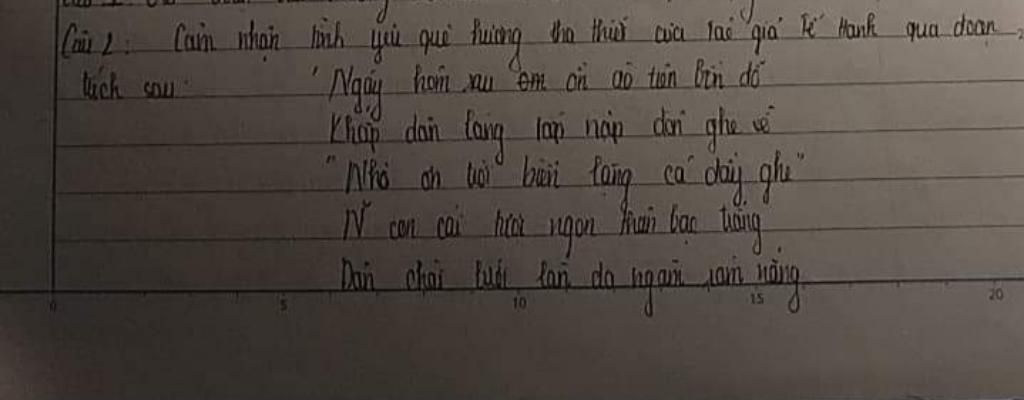 Câu 2: Cảm nhận tình yêu quê hương tha thiết của tác giả Tế Hanh qua đoạn
trích sau: "Ngày hôm sau ồn ào trên bến đỗ
Khắp dân làng tấp nập đón ghe về
"Nhờ ơn trời biển lặng cá đầy ghe"
N~ con cá tươi ngon thân bạc trắng
Dân chài lưới làn da ngăm rám nắng
0 5 10 15 20